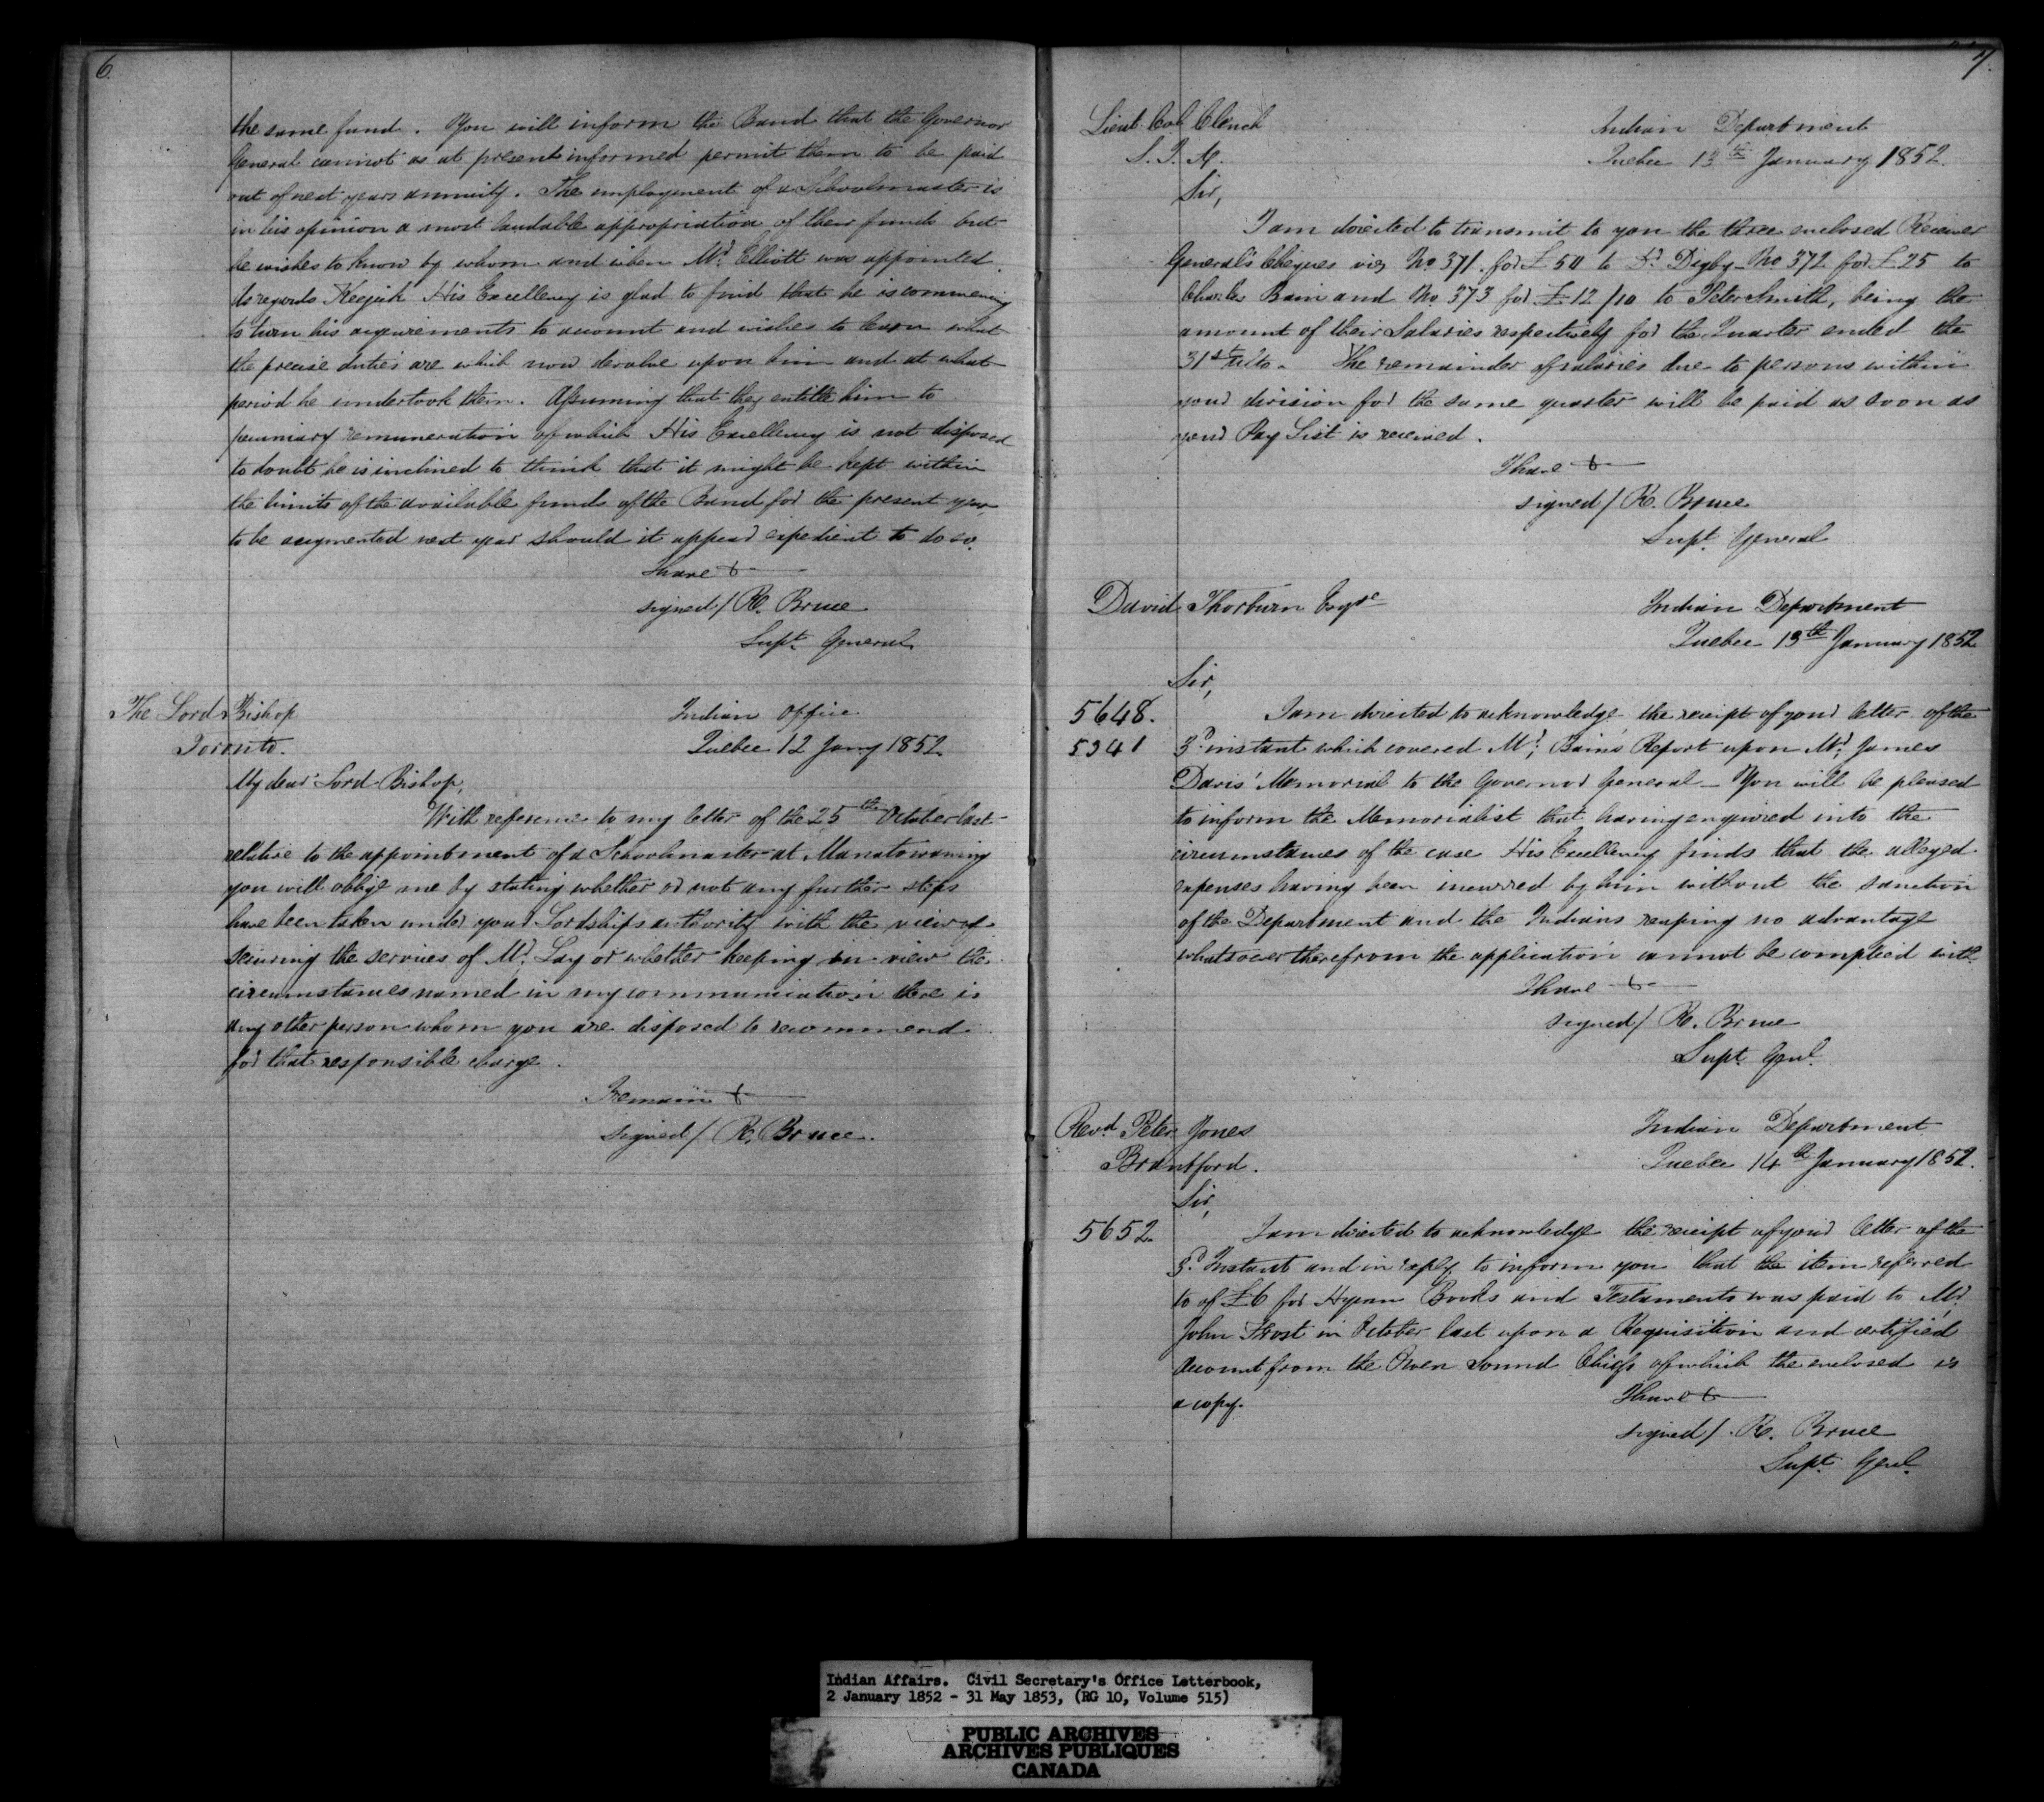 6.
the same fund. You will inform the Band that the Governor
General cannot as at present informed permit them to be paid
out of next years annuity. The employment of a Schoolmaster is
in his opinion a most laudable appropriation of their funds but
he wishes to know by whom and when Mr. Elliott was appointed.
As regards Keejick His Excellency is glad to find that he is commencing
to turn his acquirements to account and wishes to learn what
the precise duties are which now devolve upon him and at what
period he undertook them. Assuming that they entitle him to
pecuniary remuneration of which His Excellency is not disposed
to doubt he is inclined to think that it might be kept within
the limits of the available funds of the Band for the present year
to be augmented next year should it appear expedient to do so.
I have &
signed/ R. Bruce
Supt. General
The Lord Bishop
Toronto.
Indian Office
Quebec 12 Jany 1852
My dear Lord Bishop,
With reference to my letter of the 25th October last
relative to the appointment of a Schoolmaster at Manatowaning
you will oblige me by stating whether or not any further steps
have been taken under your Lordships authority with the view of
securing the services of Mr. Lay or whether keeping in view the
circumstances named in my communication there is
any other person whom you are disposed to recommend
for that responsible charge.
I remain &
signed/ R. Bruce.
7.
Lieut. Col. Clench
S. I. A.
Indian Department
Quebec 13th January 1852.
Sir,
I am directed to transmit to you the three enclosed Receiver
General's Cheques viz No. 371. for £50 to Dr. Digby - No 372 for £25 to
Charles Bain and No. 373 for £12/10 to Peter Smith, being the
amount of their Salaries respectively for the Quarter ended the
31st ulto. The remainder of salaries due to persons within
your division for the same quarter will be paid as soon as
your Pay List is received.
I have &
signed/ R. Bruce
Supt. General
David Thorburn Esqre
Indian Department
Quebec 13th January 1852
Sir,
5648.
I am directed to acknowledge the receipt of your letter of the
5341
3d. instant which covered Mr. Bains Report upon Mr. James
Davis' Memorial to the Governor General - You will be pleased
to inform the Memorialist that having enquired into the
circumstances of the case His Excellency finds that the alleged
expenses having been incurred by him without the sanction
of the Department and the Indians reaping no advantage
whatsoever therefrom the application cannot be complied with.
I have &
signed/ R. Bruce
Supt. Genl.
Revd. Peter Jones
Brantford.
Indian Department
Quebec 14th January 1852.
Sir,
5652.
I am directed to acknowledge the receipt of your letter of the
3d. Instant and in reply to inform you that the item referred
to of £6 for Hymn Books and Testaments was paid to Mr.
John Frost in October last upon a Requisition and certified
Account from the Owen Sound Chiefs of which the enclosed is
a copy.
I have &
signed/. R. Bruce
Supt. Genl.
Indian Affairs. Civil Secretary's Office Letterbook,
2 January 1852 - 31 May 1853, (RG 10, Volume 515)
PUBLIC ARCHIVES
ARCHIVES PUBLIQUES
CANADA